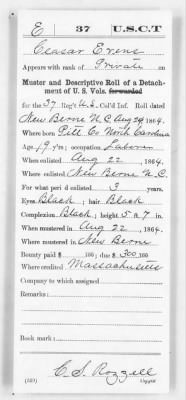 E 37 U.S.C.T
Ceasar Evens
Appears with rank of Private on
Muster and Descriptive Roll of a Detach-
ment of U. S. Vols. forwarded
for the 37 Reg't U.S. Col'd Inf. Roll dated
New Berne N.C. Aug 29 1864.
Where born Pitt Co North Carolina
Age 19 y'rs; occupation Laborer
When enlisted Aug 22, 1864.
Where enlisted New Berne N.C.
For what period enlisted 3 years.
Eyes Black; hair Black
Complexion Black; height 5 ft. 7 in.
When mustered in Aug 22, 1864.
Where mustered in New Berne
Bounty paid $ 100; due $ 300 100
Where credited Massachusetts
Company to which assigned
Remarks:
Book mark:
C. S. Rozzell
(339) Copyist